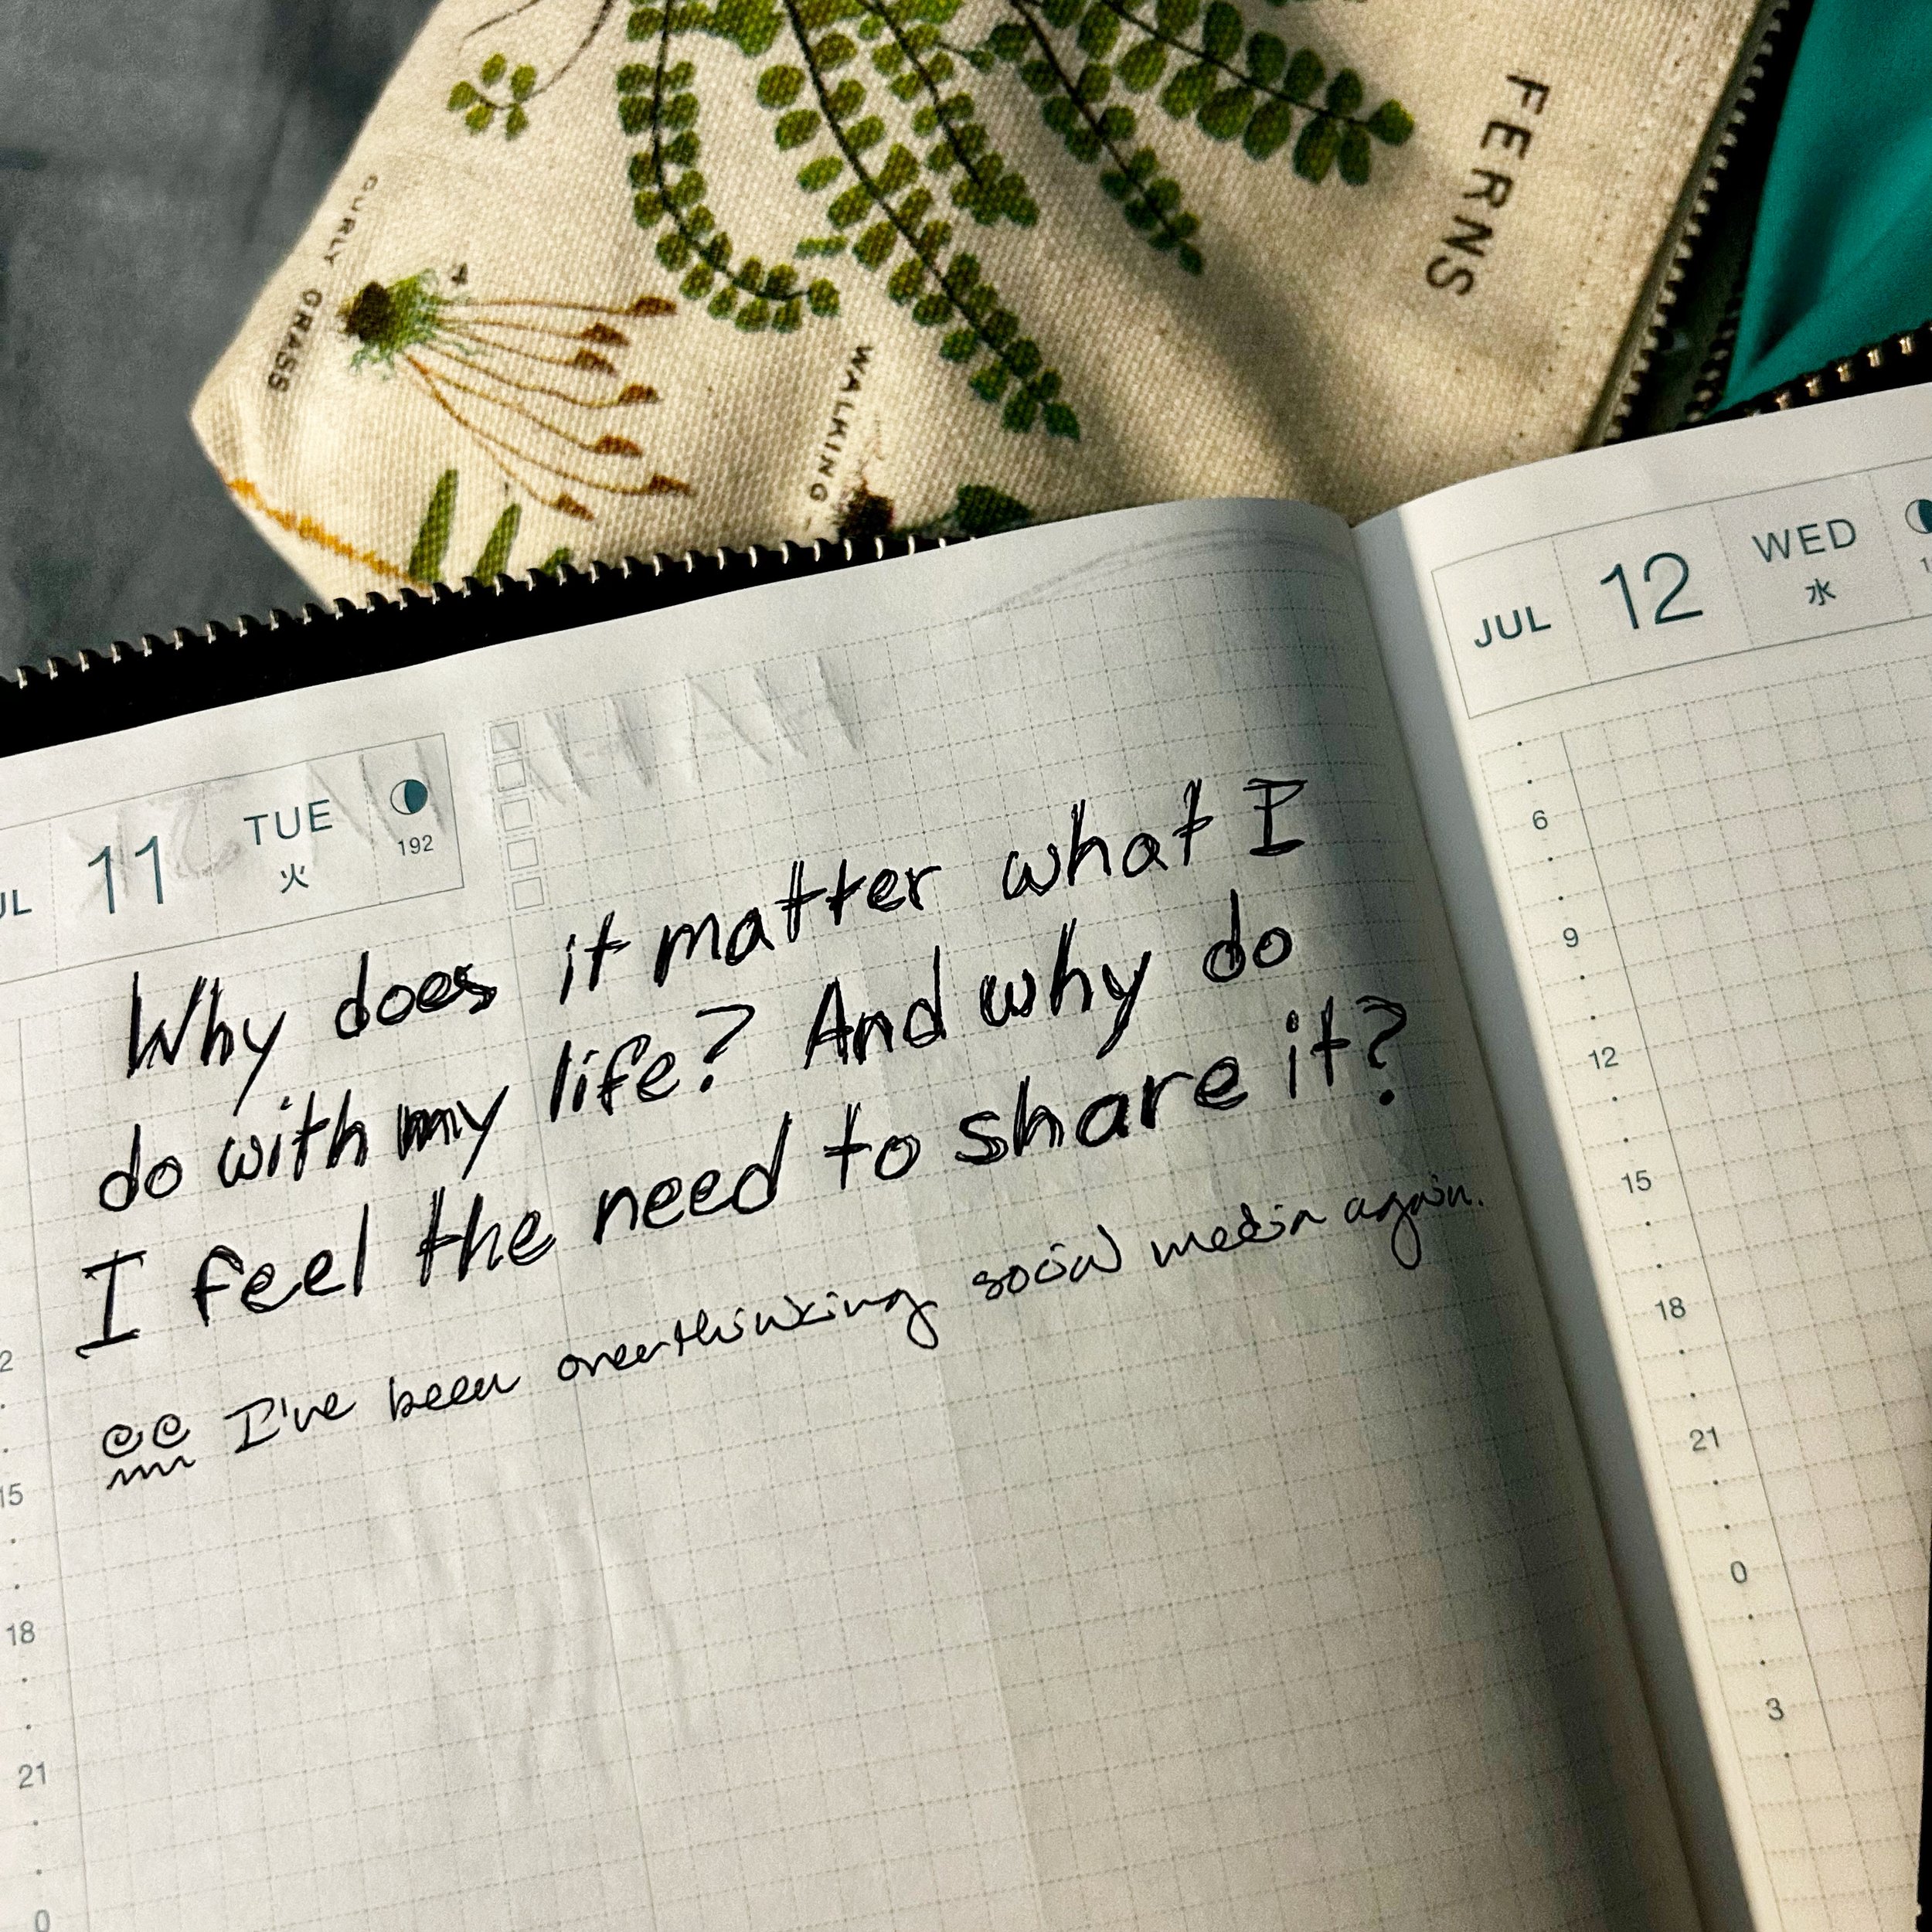 FERNS
CURLY GRASS
WALKING
JUL 12 WED
水
UL 11 TUE
火
192
Why does it matter what I
do with my life? And why do
I feel the need to share it?
I've been overthinking social media again.
2
15
18
21
0
6
9
12
15
18
21
0
3